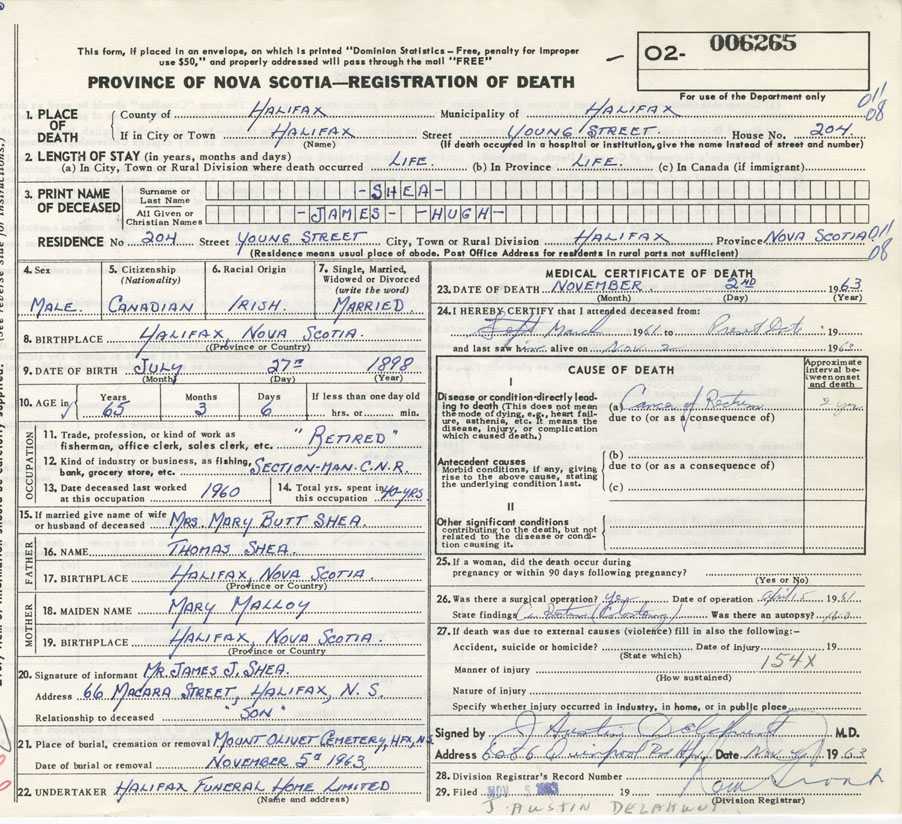 This form, if placed in an envelope, on which is printed "Dominion Statistics – Free, penalty for improper
use $50," and properly addressed will pass through the mail "FREE"
PROVINCE OF NOVA SCOTIA—REGISTRATION OF DEATH
O2- 006265
For use of the Department only
1. PLACE OF DEATH
County of HALIFAX Municipality of HALIFAX
011
08
If in City or Town HALIFAX Street YOUNG STREET. House No. 204.
(Name) (If death occurred in a hospital or institution, give the name instead of street and number)
2. LENGTH OF STAY (in years, months and days)
(a) In City, Town or Rural Division where death occurred LIFE. (b) In Province LIFE. (c) In Canada (if immigrant)
3. PRINT NAME OF DECEASED
Surname or Last Name -SHEA-
All Given or Christian Names -JAMES- -HUGH-
RESIDENCE No 204 Street YOUNG STREET City, Town or Rural Division HALIFAX Province NOVA SCOTIA 011
08
(Residence means usual place of abode. Post Office Address for residents in rural parts not sufficient)
4. Sex MALE.
5. Citizenship (Nationality) CANADIAN
6. Racial Origin IRISH.
7. Single, Married, Widowed or Divorced (write the word) MARRIED.
8. BIRTHPLACE HALIFAX, NOVA SCOTIA.
(Province or Country)
9. DATE OF BIRTH JULY 27TH 1898
(Month) (Day) (Year)
10. AGE in Years 65 Months 3 Days 6 If less than one day old hrs. or min.
OCCUPATION
11. Trade, profession, or kind of work as fisherman, office clerk, sales clerk, etc. "RETIRED"
12. Kind of industry or business, as fishing, bank, grocery store, etc. SECTION-MAN. C.N.R.
13. Date deceased last worked at this occupation 1960
14. Total yrs. spent in this occupation 40-YRS.
15. If married give name of wife or husband of deceased MRS. MARY BUTT SHEA.
FATHER
16. NAME THOMAS SHEA.
17. BIRTHPLACE HALIFAX, NOVA SCOTIA.
(Province or Country)
MOTHER
18. MAIDEN NAME MARY MALLOY
19. BIRTHPLACE HALIFAX, NOVA SCOTIA.
(Province or Country)
20. Signature of informant MR. JAMES J. SHEA.
Address 66 MACARA STREET, HALIFAX, N. S.
Relationship to deceased "SON"
21. Place of burial, cremation or removal MOUNT OLIVET CEMETERY, HFX, N.S.
Date of burial or removal NOVEMBER 5th 1963.
22. UNDERTAKER HALIFAX FUNERAL HOME LIMITED
(Name and address)
MEDICAL CERTIFICATE OF DEATH
23. DATE OF DEATH NOVEMBER 2ND 1963
(Month) (Day) (Year)
24. I HEREBY CERTIFY that I attended deceased from:
March 1961 to Present Date 19
and last saw him alive on Nov 2 196
CAUSE OF DEATH
Approximate interval between onset and death
I
Disease or condition directly leading to death (This does not mean the mode of dying, e.g., heart failure, asthenia, etc. It means the disease, injury, or complication which caused death.)
(a) Cancer of Rectum
due to (or as a consequence of)
Antecedent causes
Morbid conditions, if any, giving rise to the above cause, stating the underlying condition last.
(b)
due to (or as a consequence of)
(c)
II
Other significant conditions
contributing to the death, but not related to the disease or condition causing it.
25. If a woman, did the death occur during pregnancy or within 90 days following pregnancy?
(Yes or No)
26. Was there a surgical operation? Yes Date of operation April 1961
State findings Ca Rectum (Colostomy) Was there an autopsy? no
27. If death was due to external causes (violence) fill in also the following:–
Accident, suicide or homicide? Date of injury 19
(State which)
154X
Manner of injury
(How sustained)
Nature of injury
Specify whether injury occurred in industry, in home, or in public place
Signed by J Austin Delahunt M.D.
Address 6086 Quinpool Rd Hfx Date Nov 1963
28. Division Registrar's Record Number
29. Filed NOV 5 1963 19
(Division Registrar)
J. AUSTIN DELAHUNT